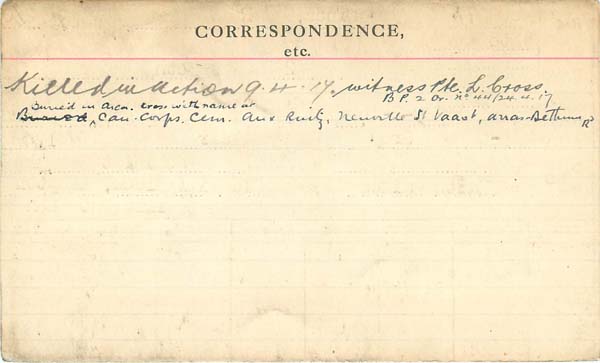 CORRESPONDENCE,
etc.
Killed in action 9.4.17. witness Pte L. Cross.
B P. 2 Or. No 44/24.4.17
Buried in Area. Cross with name at
Buried, Can. Corps. Cem. Aux Rietz, Neuville St Vaast, Arras-Bethune Rd